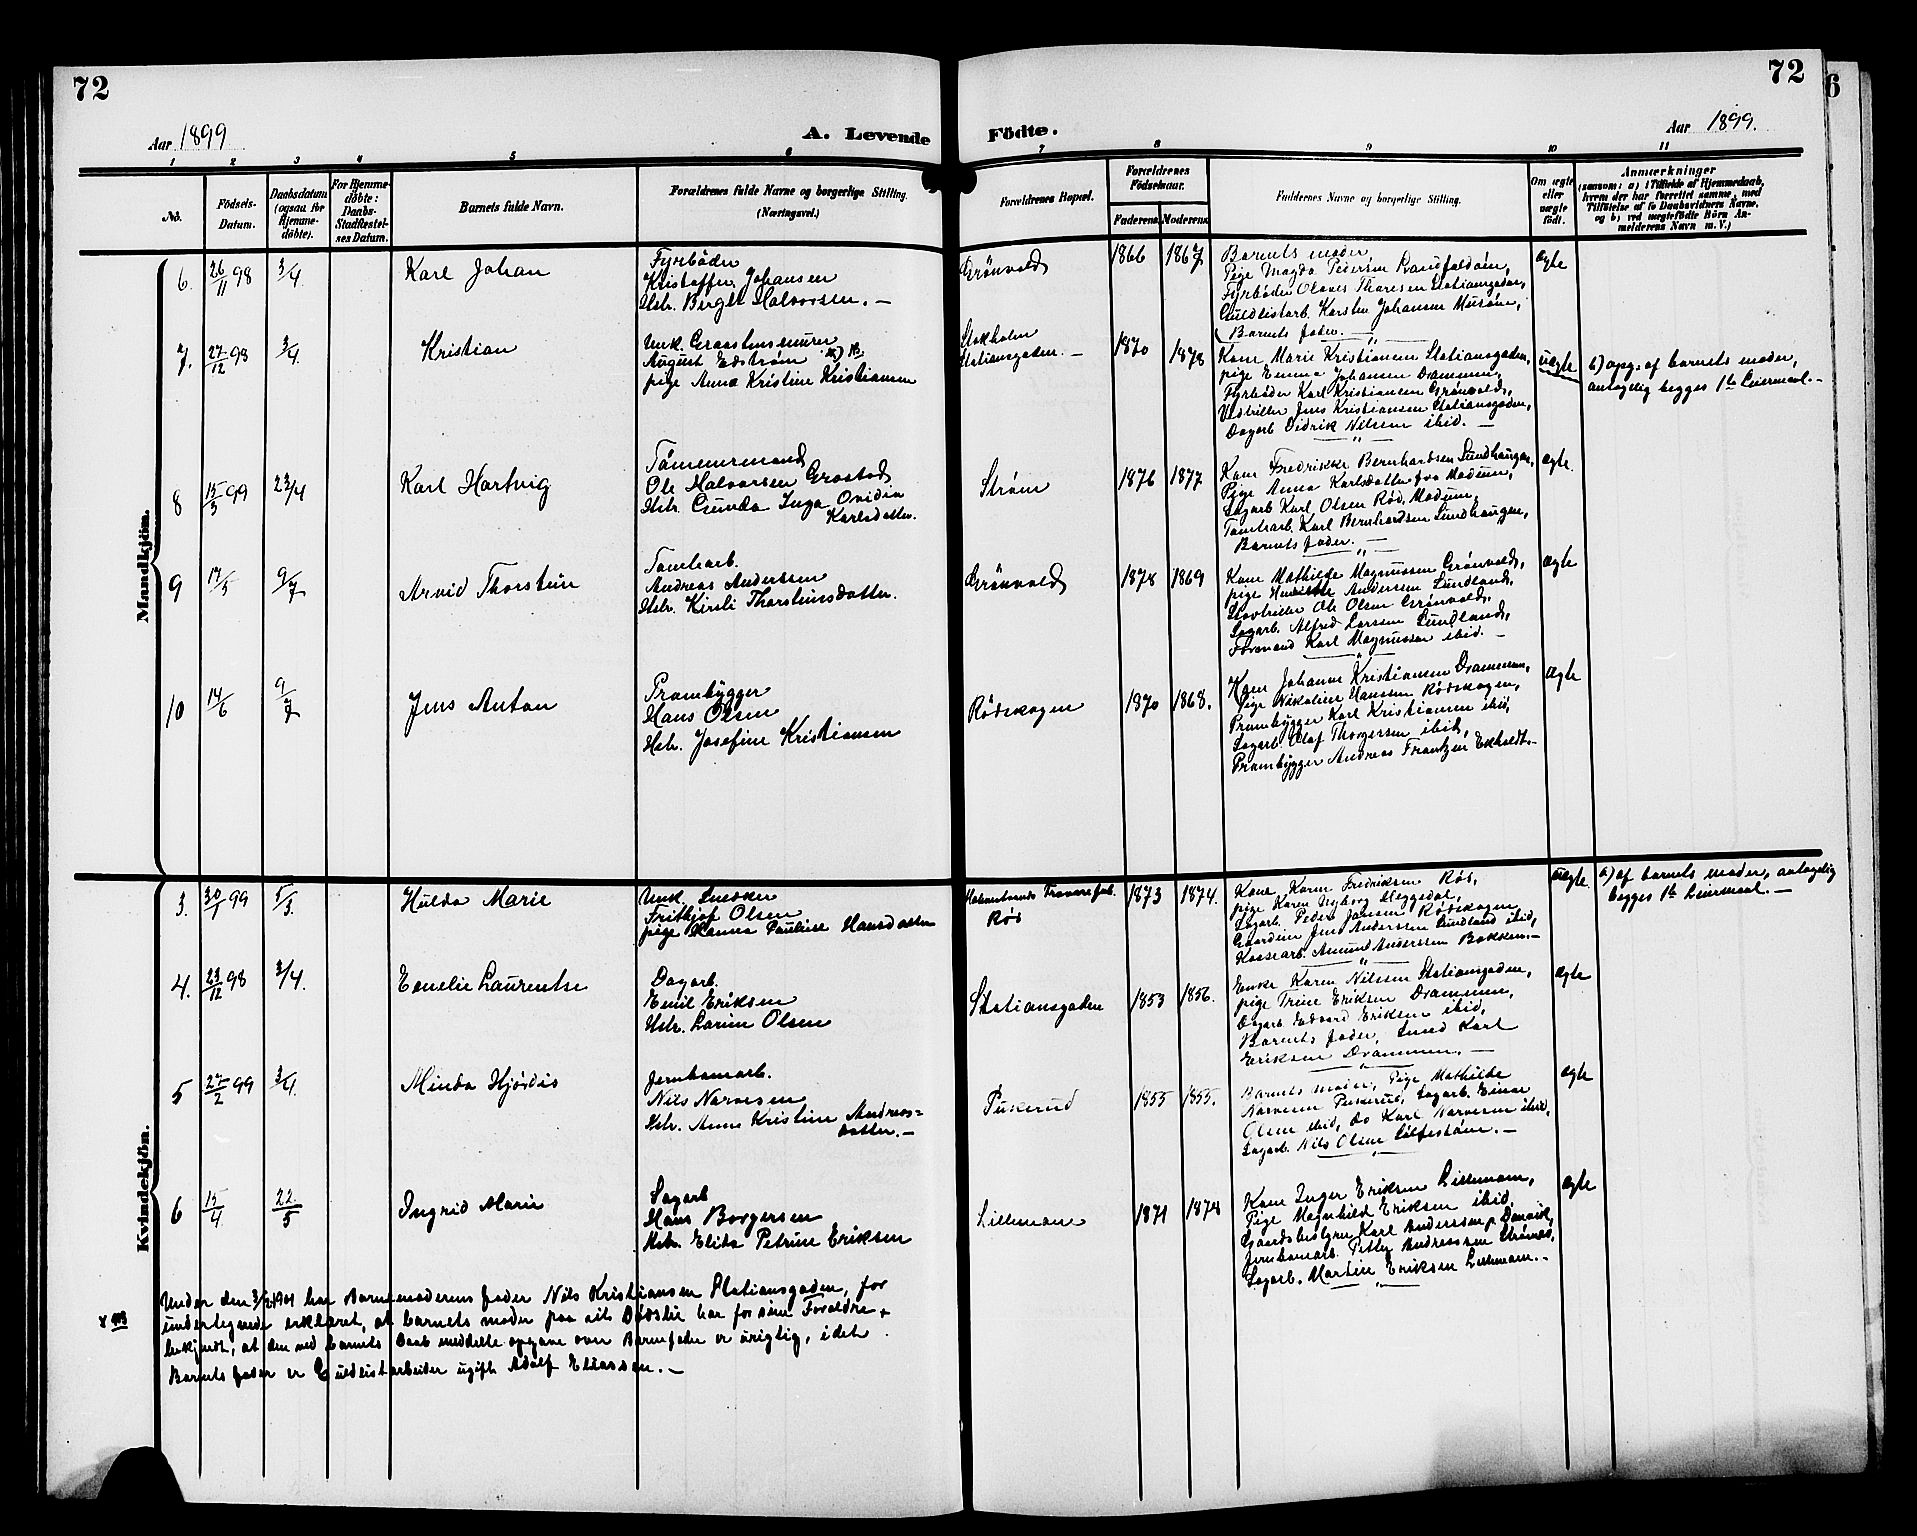 72
72
6
Aar 1899
A. Levende
Födte.
Aar 1899.
1 2 3 4 5 6 7 8 9 10 11
No.
Födsels-
Datum.
Daabsdatum
(ogsaa for
Hjemme-
döbte).
For Hjemme-
döbte:
Daabs-
Stadfæstel-
ses Datum.
Barnets fulde Navn.
Forældrenes fulde Navne og borgerlige Stilling.
(Næringsvei.)
Forældrenes Bopæl.
Forældrenes
Födselsaar.
Faderens.
Moderens.
Faddernes Navne og borgerlige Stilling.
Om ægte
eller
uægte
födt.
Anmærkninger
(saasom: a) i Tilfælde af Hjemmedaab,
hvem der har forrettet samme, med
Tilföielse af to Daabsvidners Navne,
og b) ved uægtefödte Börn An-
melderens Navn m. V.)
Mandkjön.
6. 26/11 98 3/4 Karl Johan
Fyrbøder
Kristoffer Johansen
Hstr. Bergte Halvorsen. —
Grønvold 1866 1867
Barnets moder
Pige Magda Pedersen
Fyrbøder Olaves Thoresen Stationsgaden,
Guldlistarb. Karsten Johansen
Barnets fader. —
ægte
7. 27/12 98 3/4 Kristian
Unk. Graastensmurer
August Edstrøm x) &
pige Anna Kristine Kristiansen
Stokholm
Stationsgaden. — 1870 1878
Kone Marie Kristiansen Stationsgaden,
pige Emma Johansen Drammen,
Fyrbøder Karl Kristiansen Grønvold,
Jens Kristiansen Stationsgaden,
Dagarb. Didrik Nilsen ibid. —
uægte
b) opg. af barnets moder,
antagelig begges 1ste Leiermaal. —
8 15/3 99 23/4 Karl Hartvig
Tømmermand
Ole Halvorsen Grostad
Hstr. Gunda Inga Ovidia
Karlsdatter.
Strøm 1876 1877
Kone Fredrikke Bernhardsen Sundhaugen,
Pige Anna Karlsdatter fra Modum,
Sagarb. Karl Olsen Rød, Modum,
Tomtearb. Karl Bernhardsen Sundhaugen,
Barnets fader. —
ægte.
9 17/5 9/7 Arvid Thorstein
Tomtearb.
Andreas Anderssen
Hstr. Kirsti Thorsteinsdatter.
Grønvold 1878 1869
Kone Mathilde Magnussen Grønvold,
pige Andersen Sundland,
Ole Olsen Grønvold,
Sagarb. Alfred Larssen Sundland,
Formand Karl Magnussen ibid. —
ægte
10 14/6 9/7 Jens Anton
Prambygger
Hans Olsen
Hstr. Josefine Kristiansen
Rødskogen 1870 1868.
Kone Johanne Kristiansen Drammen,
Pige Nikoline Hanssen Rødskogen,
Prambygger Karl Kristiansen ibid,
Sagarb. Olaf Thorgersen ibid,
Prambygger Andreas Frantzen Ekholdt. —
ægte
Kvindekjön.
3. 30/1 99 5/3. Hulda Marie
Unk. Snedker
Fritkjof Olsen
pige Hanna Pauline Hansdatter
Rød 1873 1874.
Kone Karen Fredriksen Rød,
pige Karen Nyborg Meggedal,
Sagarb. Peder Jansen Rødskogen
Gaardeier Jens Anderssen Sundland ibid,
Kassearb. Amund Anderssen Bakken. —
uægte.
a) af barnets moder, antagelig
begges 1ste Leiermaal. —
4. 23/12 98 3/4. Emelie Laurentse
Dagarb.
Emil Eriksen
Hstr. Larine Olsen
Stationsgaden 1853 1856.
Enke Karen Nilsen Stationsgaden,
pige Trine Eriksen Drammen,
Dagarb. Edvard Eriksen ibid,
Barnets fader, Smed Karl
Eriksen Drammen. —
ægte
5 27/2 99 3/4. Minda Hjørdis
Jernbanearb.
Nils Narvesen
Hstr. Anne Kristine Andreas-
datter. —
Pukerud 1855 1855.
Barnets moder, Pige Mathilde
Narvesen Pukerud, Sagarb. Einar
Olsen ibid, do Karl Narvesen ibid,
Sagarb. Nils Olsen
ægte
6 15/4 22/5 Ingrid Marie
Sagarb
Hans Borgersen
Hstr. Elida Petrine Eriksen
Lillemoen 1871 1874
Kone Inger Eriksen Lillemoen,
Pige Magnhild Eriksen ibid,
Gaardsbestyrer Karl Anderssen p. Danvik,
Jernbanearb. Petter Andreassen Strømsø,
Sagarb. Martin Eriksen Lillemoen. —
ægte
Under den 3/2 1901 har Barnemoderens fader Nils Kristiansen Stationsgaden, for
undertegnede erklæret, at barnets moder paa sit Dødsleie har for sine Forældre
bekjendt, at den ved barnets Daab meddelte opgave over Barnefader er urigtig, idet
Barnets fader er Guldlistarbeider ugift Adolf Eliassen. —